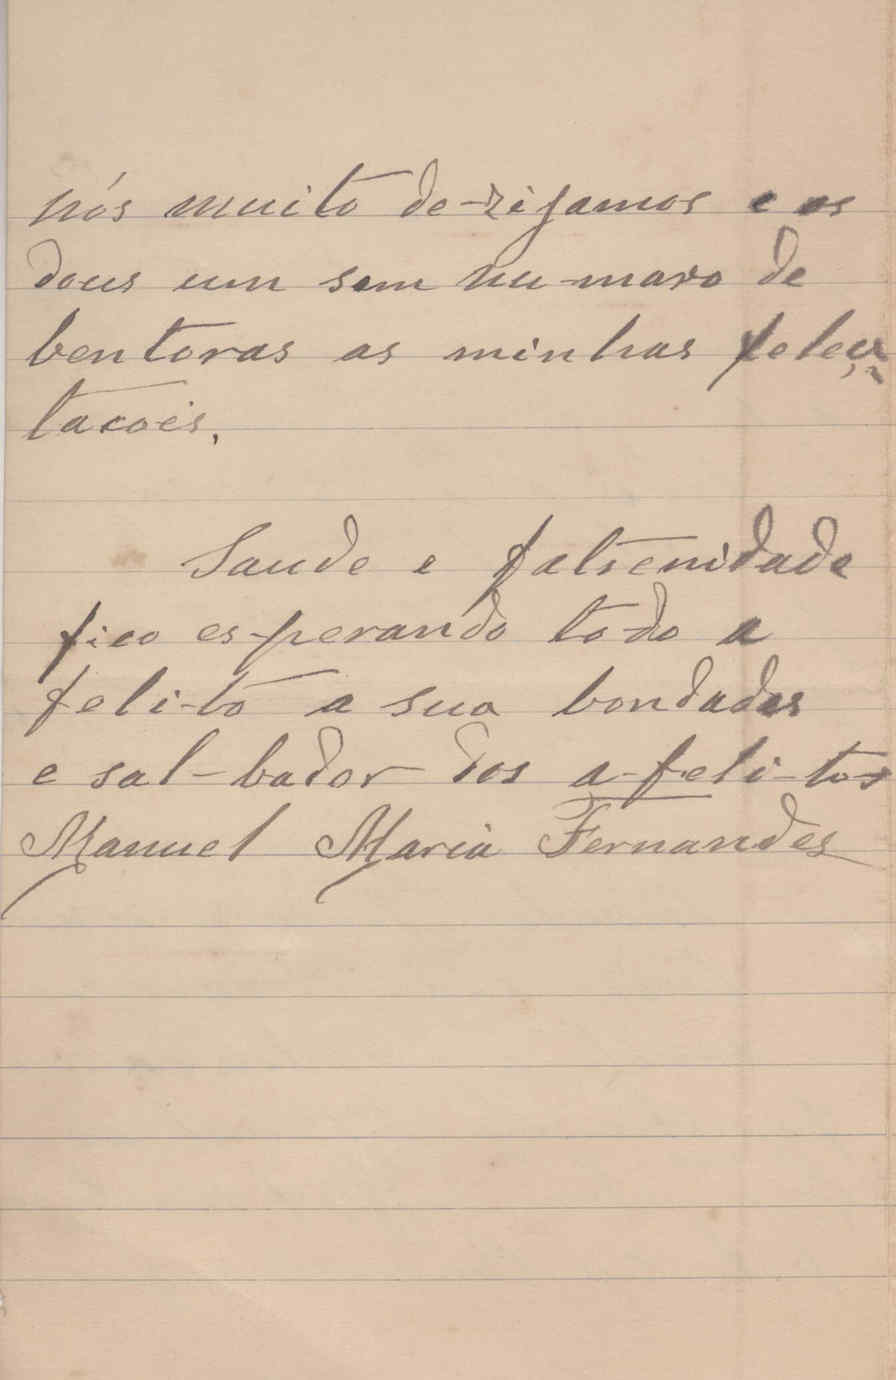 nós muito de-zijamos e os
dous um sem nu-maro de
bentoras as minhas
tacois.
Saude e fatrenidade
fico es-perando todo a
feli-to a sua bondades
e sal-bador dos a-feli-tos
Manuel Maria Fernandes